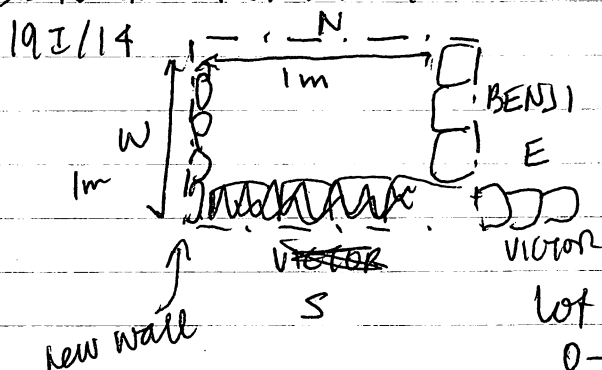 19I/14
N
1m
BENJI
W
E
1m
VICTOR
VICTOR
S
new wall
lot
0-